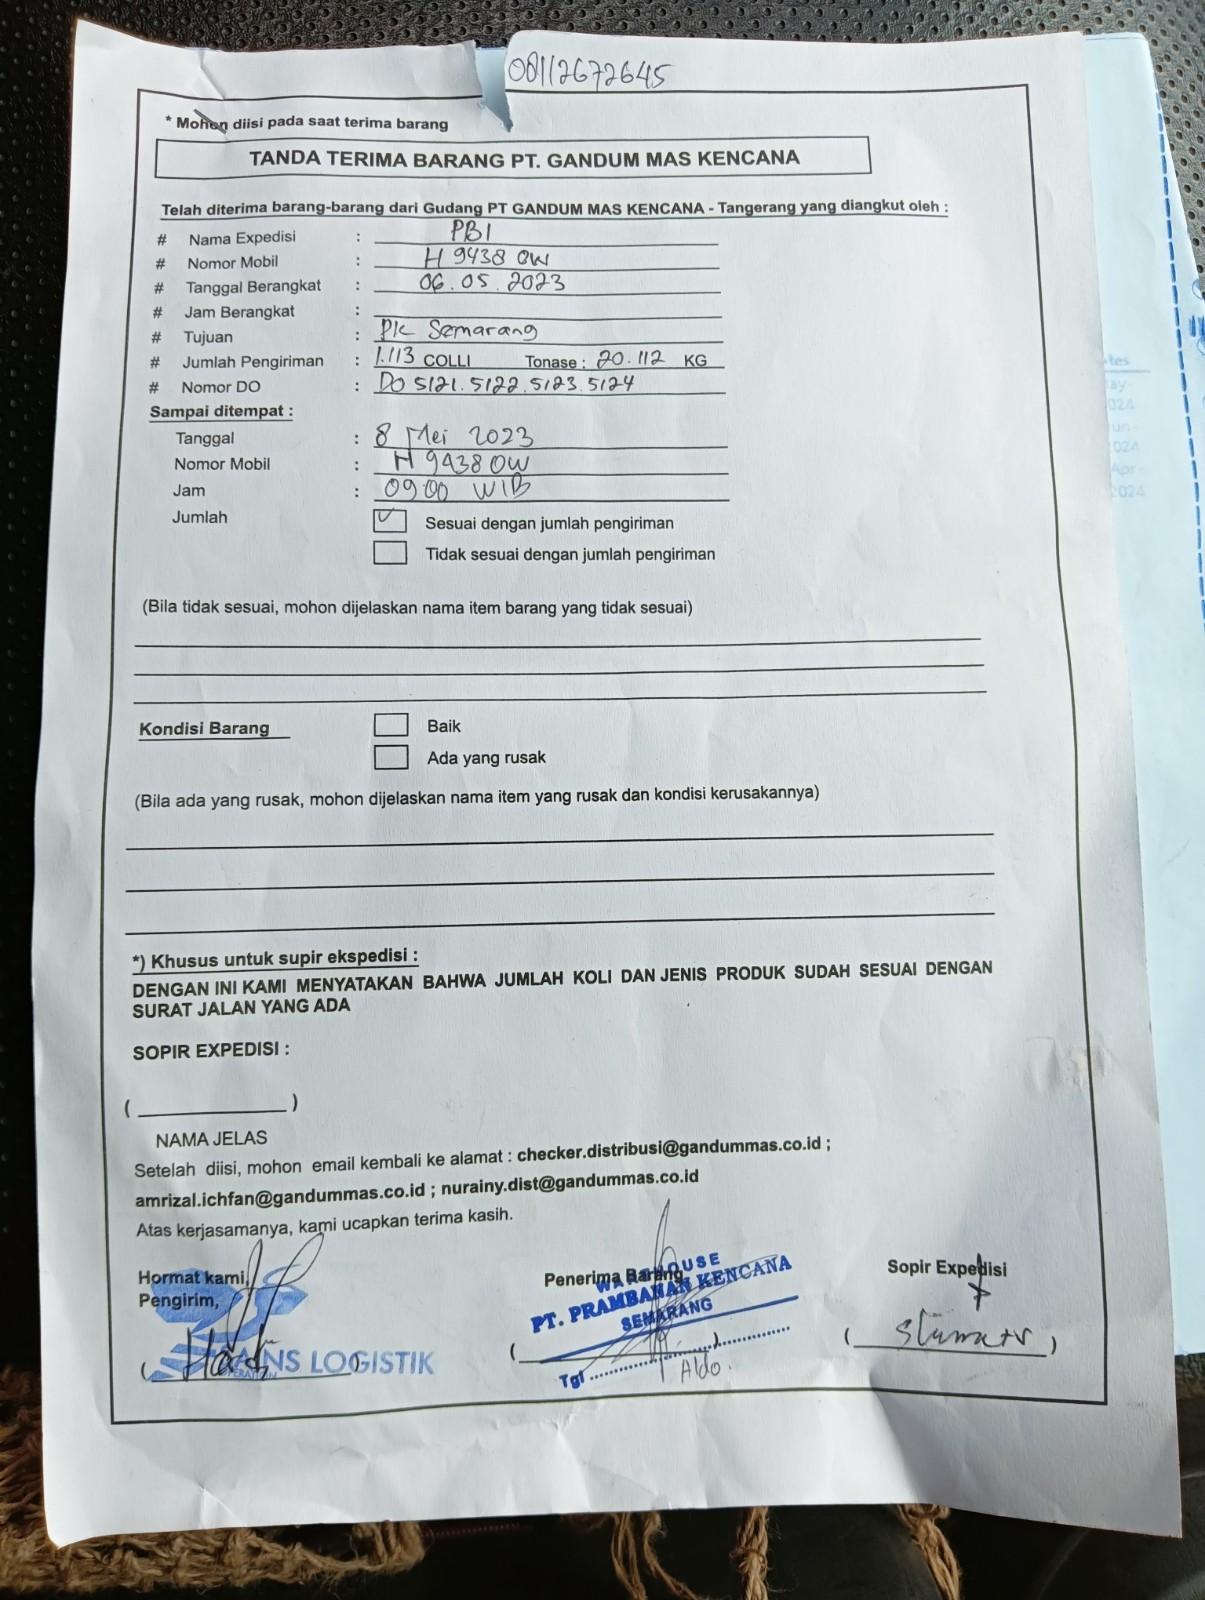 08112672645
* Mohon diisi pada saat terima barang
TANDA TERIMA BARANG PT. GANDUM MAS KENCANA
Telah diterima barang-barang dari Gudang PT GANDUM MAS KENCANA - Tangerang yang diangkut oleh :
# Nama Expedisi : PBI
# Nomor Mobil : H 9438 OW
# Tanggal Berangkat : 06.05.2023
# Jam Berangkat :
# Tujuan : PK Semarang
# Jumlah Pengiriman : 1.113 COLLI Tonase : 20.112 KG
# Nomor DO : DO 5121.5122.5123.5124
Sampai ditempat :
Tanggal : 8 Mei 2023
Nomor Mobil : H 9438 OW
Jam : 09.00 WIB
Jumlah
Sesuai dengan jumlah pengiriman
Tidak sesuai dengan jumlah pengiriman
(Bila tidak sesuai, mohon dijelaskan nama item barang yang tidak sesuai)
Kondisi Barang Baik
Ada yang rusak
(Bila ada yang rusak, mohon dijelaskan nama item yang rusak dan kondisi kerusakannya)
*) Khusus untuk supir ekspedisi :
DENGAN INI KAMI MENYATAKAN BAHWA JUMLAH KOLI DAN JENIS PRODUK SUDAH SESUAI DENGAN
SURAT JALAN YANG ADA
SOPIR EXPEDISI :
( )
NAMA JELAS
Setelah diisi, mohon email kembali ke alamat : checker.distribusi@gandummas.co.id ;
amrizal.ichfan@gandummas.co.id ; nurainy.dist@gandummas.co.id
Atas kerjasamanya, kami ucapkan terima kasih.
Hormat kami,
Pengirim,
LOGISTIK
Penerima Barang
WAREHOUSE
PT. PRAMBANAN KENCANA
SEMARANG
Tgl
Aldo.
Sopir Expedisi